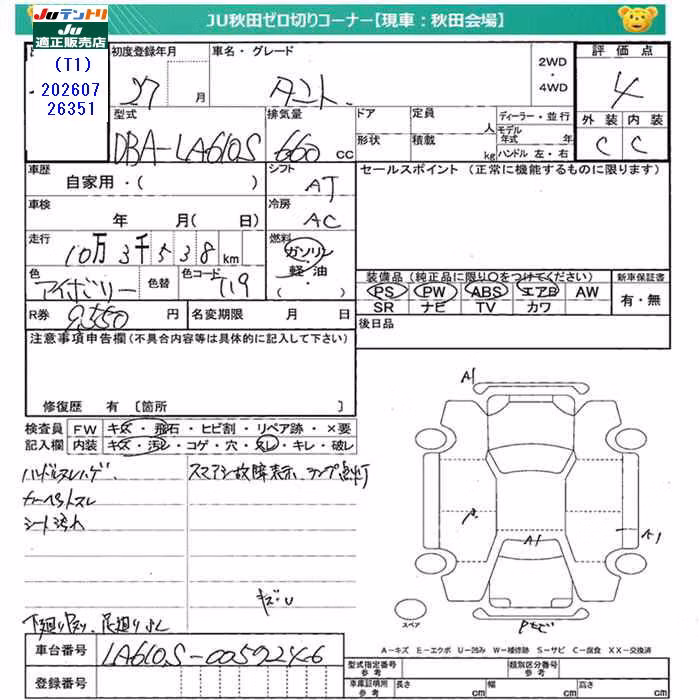 Juテントリ
Ju
適正販売店
(T1)
202607
26351
JU秋田ゼロ切りコーナー【現車：秋田会場】
初度登録年月
27 月
車名・グレード
タント
2WD
・
4WD
評価点
4
外装 内装
C C
型式
DBA-LA610S
排気量
660 cc
ドア
形状
定員 人
積載 kg
ディーラー・並行
モデル年式 年
ハンドル 左・右
車歴
自家用・( )
シフト
AT
セールスポイント (正常に機能するものに限ります)
車検
年 月( 日)
冷房
AC
走行
10万3千538km
燃料
ガソリン
軽・油
( )
色
アイボリー
色替
色コード
T19
装備品(純正品に限り○をつけてください)
PS PW ABS エアB AW
SR ナビ TV カワ
新車保証書
有・無
R券 9,550円
名変期限 月 日
後日品
注意事項申告欄(不具合内容等は具体的に記入して下さい)
修復歴 有 〔箇所 〕
検査員 FW キズ・飛石・ヒビ割・リペア跡・×要
記入欄 内装 キズ・汚レ・コゲ・穴・スレ・キレ・破レ
ハンドルスレハゲ
カーペットスレ
シート汚れ
スマアシ故障表示、ランプ点灯
キズU
下廻り
足廻り
A1
A1
A1
スペア
A-キズ E-エクボ U-凹み W-補修跡 S-サビ C-腐食 XX-交換済
車台番号 LA610S-0059246
登録番号
型式指定番号
参考
類別区分番号
参考
車庫証明用
参考
長さ cm 幅 cm 高さ cm